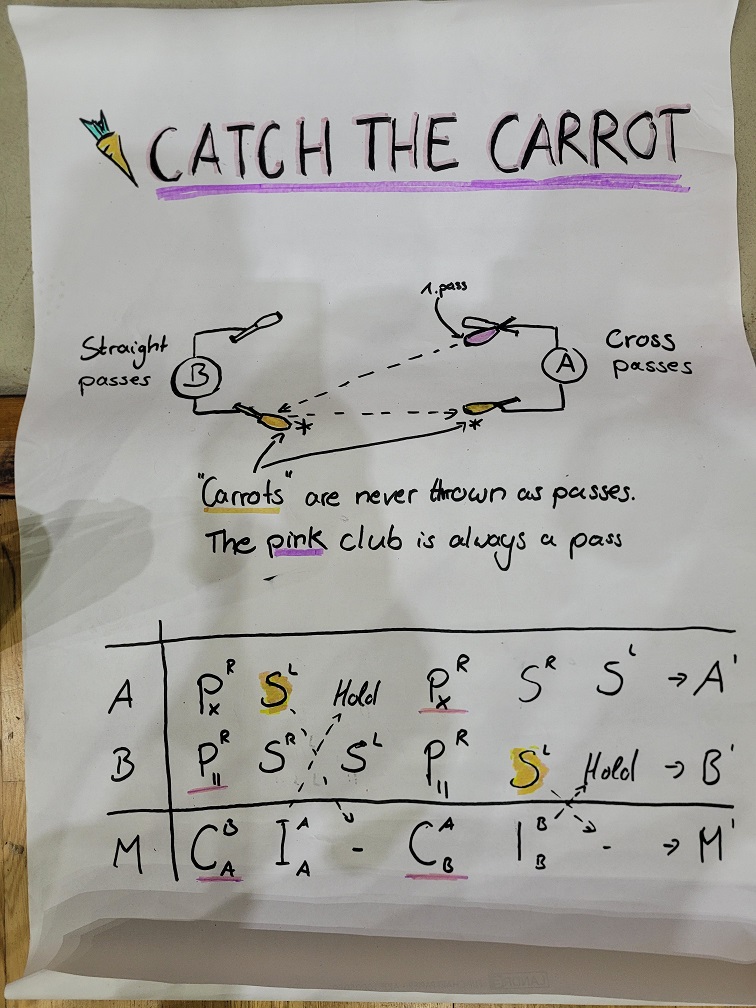 CATCH THE CARROT
1. pass
Straight
passes
B
A
Cross
passes
*
*
"Carrots" are never thrown as passes.
The pink club is always a pass
A Pxᴿ Sᴸ Hold Pxᴿ Sᴿ Sᴸ → A'
B P||ᴿ Sᴿ Sᴸ P||ᴿ Sᴸ Hold → B'
M C_Aᴮ I_Aᴬ - C_Bᴬ I_Bᴮ - → M'